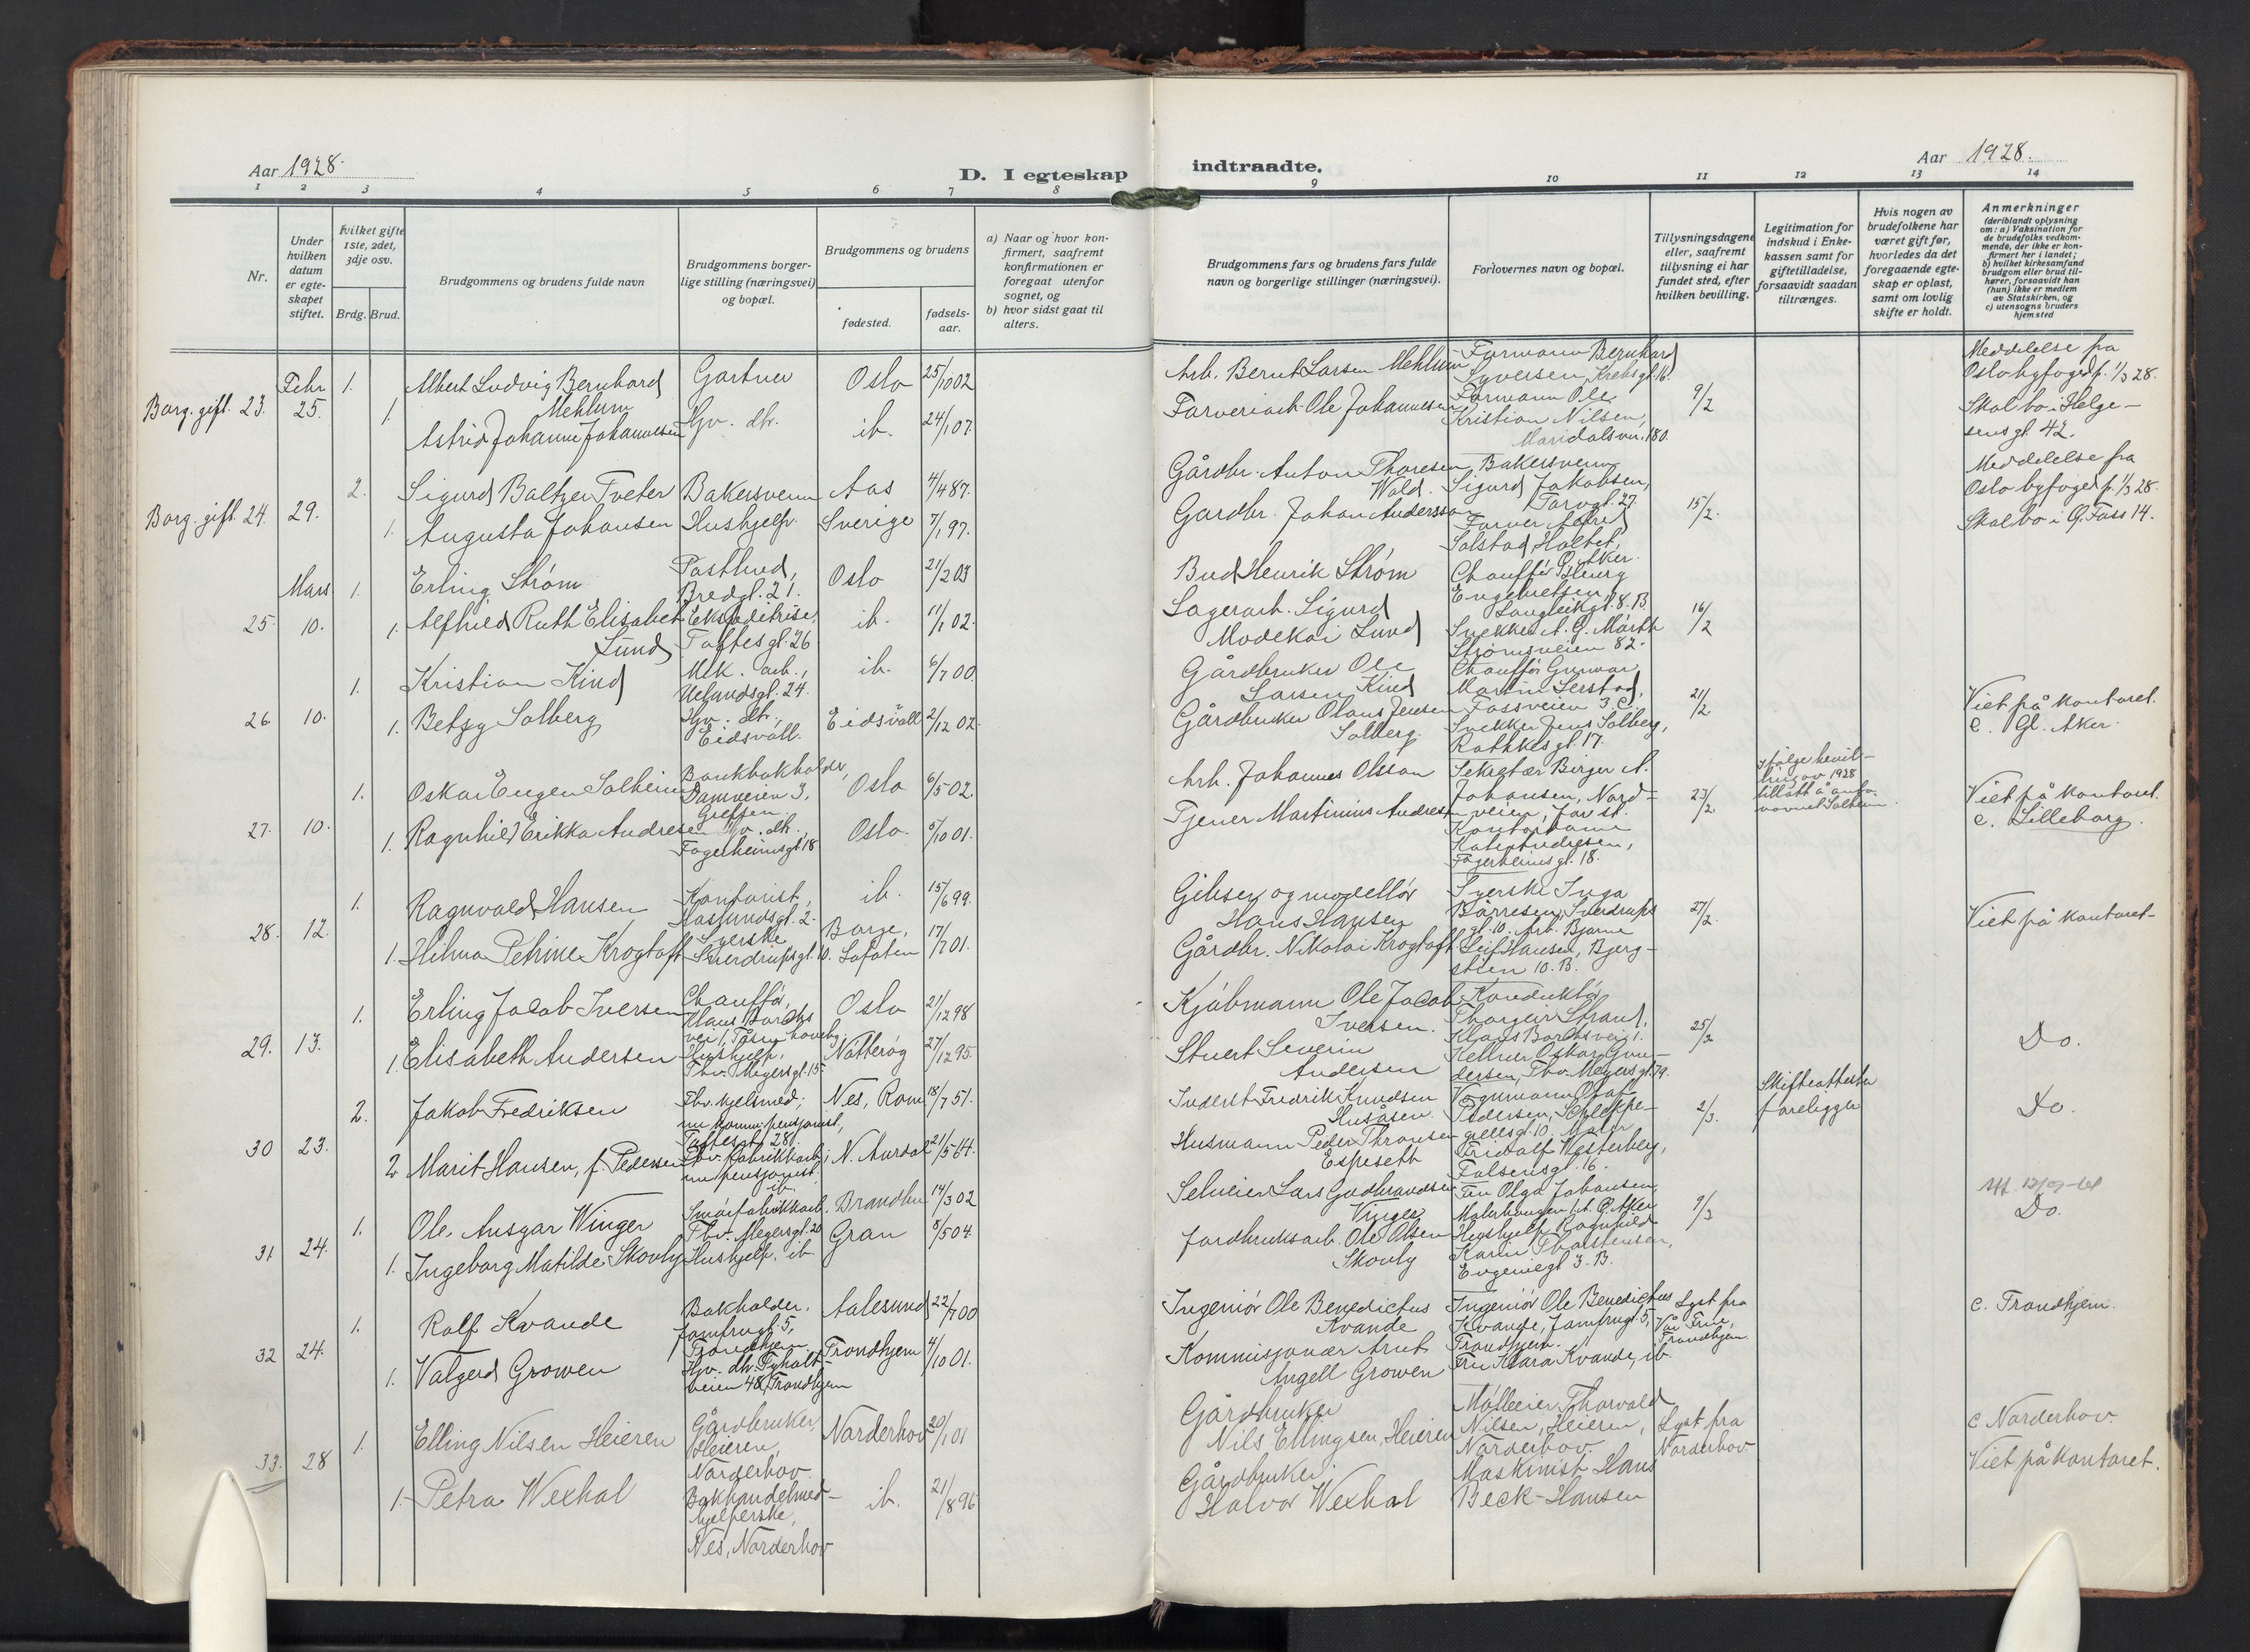 Aar 1928.
D. I egteskap
indtraadte.
Aar 1928.
1 2 3 4 5 6 7 8
9 10 11 12 13 14
Nr.
Under
hvilken
datum
er egte-
skapet
stiftet.
Hvilket gifte
1ste, 2det,
3dje osv.
Brdg. Brud.
Brudgommens og brudens fulde navn
Brudgommens borger-
lige stilling (næringsvei)
og bopæl.
Brudgommens og brudens
fødested.
fødsels-
aar.
a) Naar og hvor kon-
firmert, saafremt
konfirmationen er
foregaat utenfor
sognet, og
b) hvor sidst gaat til
alters.
Brudgommens fars og brudens fars fulde
navn og borgerlige stillinger (næringsvei).
Forlovernes navn og bopæl.
Tillysningsdagene
eller, saafremt
tillysning ei har
fundet sted, efter
hvilken bevilling.
Legitimation for
indskud i Enke-
kassen samt for
giftetilladelse,
forsaavidt saadan
tiltrænges.
Hvis nogen av
brudefolkene har
været gift før,
hvorledes da det
foregaaende egte-
skap er opløst,
samt om lovlig
skifte er holdt.
Anmerkninger
(deriblandt oplysning
om: a) Vaksination for
de brudefolks vedkom-
mende, der ikke er kon-
firmert her i landet;
b) hvilket kirkesamfund
brudgom eller brud til-
hører, forsaavidt han
(hun) ikke er medlem
av Statskirken, og
c) utensogns bruders
hjemsted
Borg. gift. 23. Febr 25.
1. Albert Ludvig Bernhard
Mehlum
Gartner
Oslo 25/10 02
1. Astrid Johanne Johannesen
Hjv. dtr.
ib. 24/1 07.
Arb. Bernt Larsen Mehlum
Farveriarb. Ole Johannesen
Formann Bernhard
Syversen, Krebsgt. 16.
Formann Ole
Kristian Nilsen,
Maridalsvn. 180.
9/2
Meddelelse fra
Oslo byfoged p. 1/3 28.
Skal bo i Helge-
sensgt. 42.
Borg. gift. 24. 29.
2. Sigurd Baltzer Tveter
Bakersvenn
Aas 4/4 87.
1. Augusta Johansen
Hushjelp.
Sverige 7/1 97.
Gårdbr. Anton Thoresen
Wold.
Gardbr. Johan Andersson
Bakersvenn
Sigurd Jakobsen,
Torvgt. 27
Farver Alfred
Solstad, Holtet,
Ø. Aker.
15/2.
Meddelelse fra
Oslo byfoged p. 1/3 28.
Skal bo i Q. Foss 14.
25. Mars 10.
1. Erling Strøm
Postbud,
Bredgt. 21.
Oslo 21/2 03
1. Alfhild Ruth Elisabet
Lund
Ekspeditrise,
Toftesgt. 26
ib. 11/1 02.
Bud Henrik Strøm
Lagerarb. Sigurd
Modekai Lund
Chauffør Georg
Engebretsen,
Langleikgt. 8. B.
Snekker A. G. Marth
Strømsveien 82.
16/2
26. 10.
1. Kristian Kind
Mek. arb.,
Uelandsgt. 24.
ib. 6/7 00.
1. Betzy Solberg
Hjv. dtr.,
Eidsvoll.
Eidsvoll 2/12 02.
Gårdbruker Ole
Larsen Kind
Gårdbruker Olaus Jensen
Solberg.
Chauffør Gunnar
Martin Lerstad,
Fossveien 3. C.
Snekker Jens Solberg,
Rathkesgt. 17.
21/2
Viet på kontoret.
c. Gl. Aker.
27. 10.
1. Oskar Eugen Solheim
Bankbokholder,
Damveien 3,
Grefsen.
Oslo 6/5 02.
1. Ragnhild Erikka Andresen
Hjv. dtr.
Fagerheimsgt. 18
Oslo. 5/10 01.
Arb. Johannes Olsson
Tjener Martinius Andresen
Sekretær Birger A.
Johansen, Nord-
veien, Jar st.
Kontordame
Andresen,
Fagerheimsgt. 18.
23/2
Ifølge bevil-
ling av 1928
tillatt å anta
navnet Solheim.
Viet på kontoret.
c. Lilleborg.
28. 12.
1. Ragnvald Hansen
Kontorist,
Haslundsgt. 2.
ib. 15/6 99.
1. Hilma Petrine Krogtoft
Syerske
Sverdrupsgt. 10.
Borge,
Lofoten 17/7 01.
Gipser og modellør
Hans Hansen
Gårdbr. Nikolai Krogtoft
Syerske Inga
Børresen, Sverdrups
gt. 10. Arb. Bjarne
Leif Hansen, Bjerg-
stien 10. B.
27/2.
Viet på kontoret.
29. 13.
1. Erling Jacob Iversen
Chauffør,
Klaus Borchs
vei 1, Tåsen haveby.
Oslo 21/12 98
1. Elisabeth Andersen
Hushjelp,
Thv. Meyersgt. 15.
Nøtterøy 27/12 95.
Kjøbmann Ole Jacob
Iversen.
Stuert Severin
Andersen
Konduktør
Thorgeir Strand,
Klaus Borchsvei 1.
Kellner Oskar Gun-
dersen, Thv. Meyersgt. 79.
25/2
Do.
30 23.
2. Jakob Fredriksen
Fhv. hjelsmed;
nu komm. pensjonist,
Toftesgt. 28.
Nes, Rom 18/7 51.
2 Marit Hansen, f. Pedersen
Fhv. fabrikkarb.;
nu pensjonist,
ib.
N. Aurdal 21/5 64.
Inderst Fredrik Knudsen
Husåsen.
Husmann Peder Thronsen
Espeseth
Vognmann Olaf
Pedersen, Schleppe-
grellsgt. 10. Maler
Fridolf Westerberg,
Falsensgt. 16.
2/3.
Skifteattester
foreligger
Do.
31 24.
1. Ole Ansgar Winger
Smørfabrikkarb.
Thv. Meyersgt. 20
Brandbu 14/3 02
1. Ingeborg Matilde Skovly
Hushjelp. ib.
Gran 8/5 04
Selveier Lars Gudbrandsen
Vinger
Jordbruksarb. Ole Olsen
Skovly
Fru Olga Johansen,
Malerhaugen pr. Ø. Aker
Hushjelp Ragnhild
Karin Thorstensen,
Eugeniegt 3. B.
9/3
Do.
32 24.
1. Rolf Kvande
Bokholder.
Jomfrugt. 5,
Trondhjem.
Aalesund 22/7 00
1. Valgerd Growen
Hjv. dtr. Tyholt-
veien 48, Trondhjem
Trondhjem 4/10 01.
Ingeniør Ole Benedictus
Kvande
Kommisjonær Arnt
Angell Growen
Ingeniør Ole Benedictus
Kvande, Jomfrugt. 5,
Trondhjem.
Fru Klara Kvande, ib.
Lyst fra
Vår Frue,
Trondhjem.
c. Trondhjem.
33. 28
1. Elling Nilsen Heieren
Gårdbruker,
Heieren,
Norderhov.
Norderhov 20/1 01
1. Petra Wexhal
Bokhandelmed-
hjelperske,
Nes, Norderhov
ib. 21/8 96.
Gårdbruker
Nils Ellingsen, Heieren
Gårdbruker
Halvor Wexhal
Mølleeier Thorvald
Nilsen, Heieren,
Norderhov.
Maskinist Hans
Beck-Hansen
Lyst fra
Norderhov
c Norderhov.
Viet på kontoret.